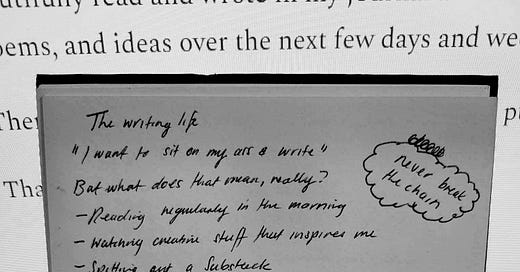 read and wrote in my
poems, and ideas over the next few days and we
The writing life
"I want to sit on my ass & write"
But what does that mean, really?
never break
the chain
- Reading regularly in the morning
- Watching creative stuff that inspires me
- Spitting out a Substack